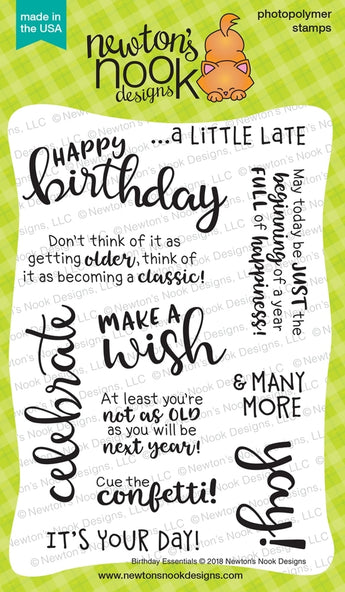 made in
the USA
newton's
nook
designs
photopolymer
stamps
...a LiTTLE LATE
HAPPY
birthday
May today be JUST the
beginning of a year
FULL of happiness!
Don't think of it as
getting older, think of
it as becoming a classic!
celebrate
MAKE A
wish
& MANY
MORE
At least you're
not as OLD
as you will be
next year!
Cue the
confetti!
yay!
IT'S YOUR DAY!
Birthday Essentials © 2018 Newton's Nook Designs
www.newtonsnookdesigns.com
© Newton's Nook Designs, LLC